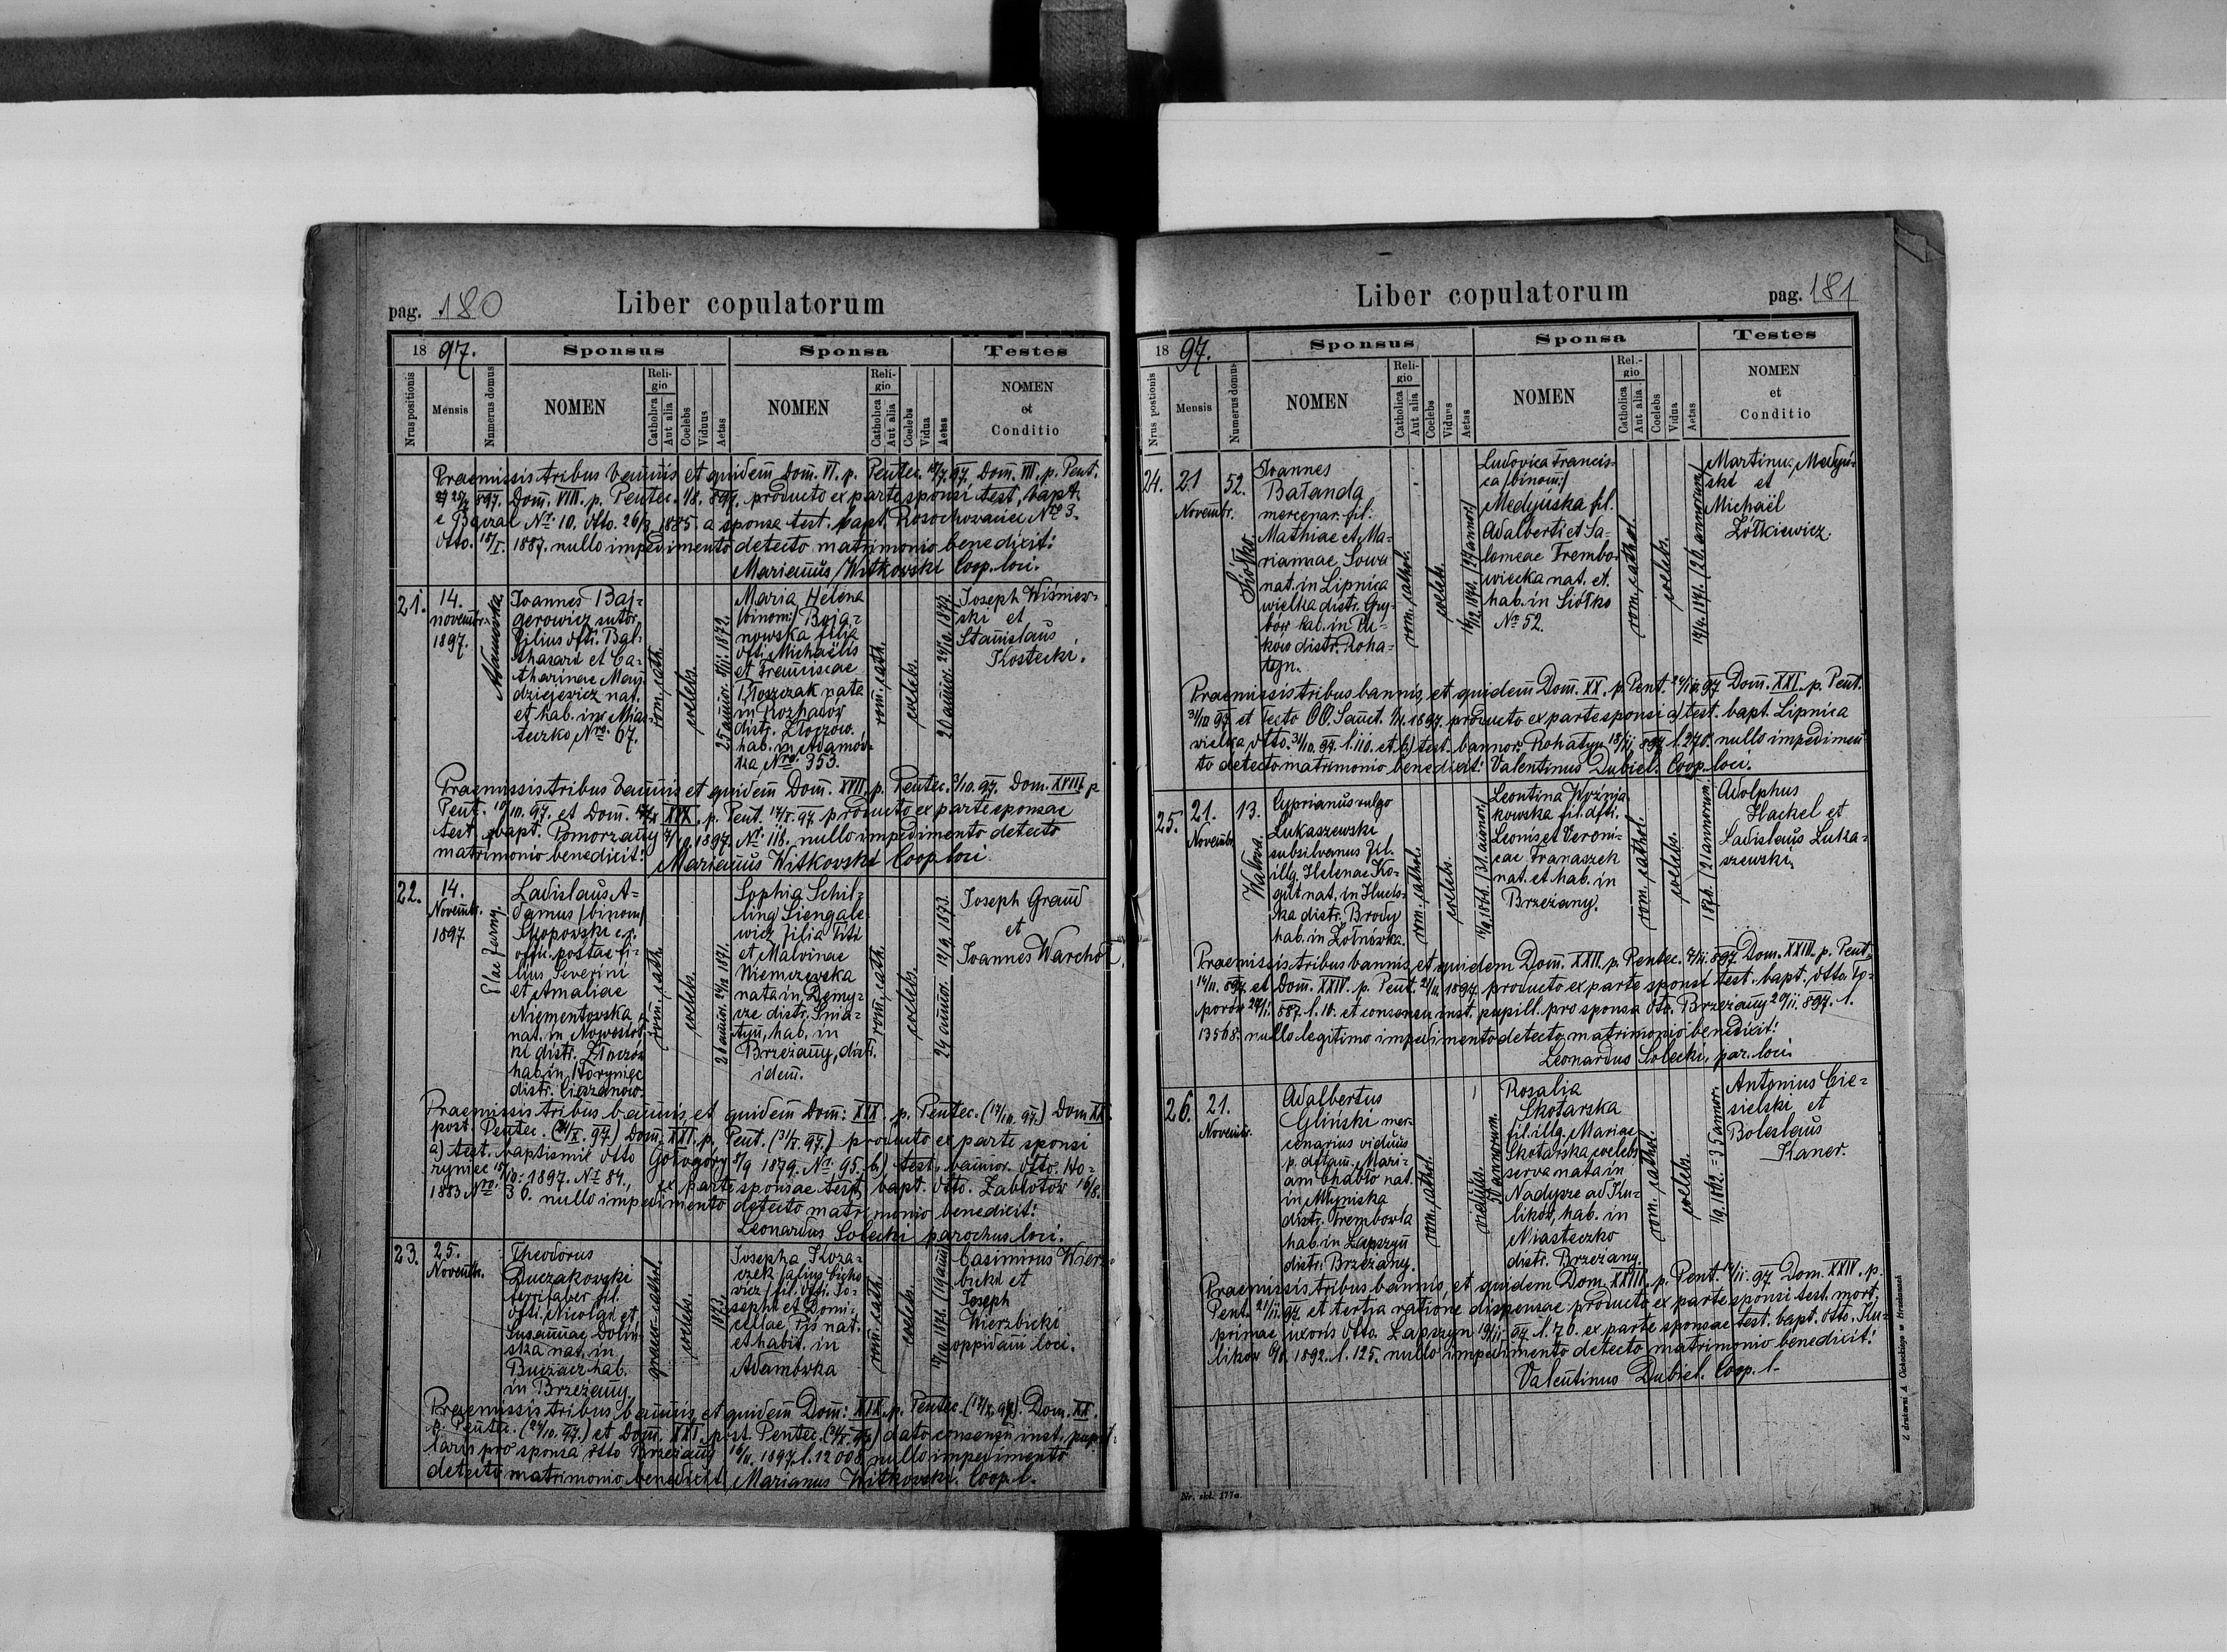 pag. 180
Liber copulatorum
1897.
Sponsus
Sponsa
Testes
Nrus positionis
Mensis
Numerus domus
NOMEN
Religio
Catholica
Aut alia
Coelebs
Viduus
Aetas
NOMEN
Religio
Catholica
Aut alia
Coelebs
Vidua
Aetas
NOMEN
et
Conditio
Praemissis tribus bannis et quidem Dom. VI. p. Pentec. 18/7. 97. Dom. VII. p. Pent.
25/7 897. Dom. VIII. p. Pentec. 1/8. 897. producto ex parte sponsi test. bapt.
Nr. 10. dtto. 26/3 1885. a sponsa test. bapt. Nro 3.
dtto. 18/I. 1887. nullo impedimento detecto matrimonio benedixit:
Marianus Witkowski Coop. loci.
21.
14.
novembr.
1897.
Adamówka.
Joannes Baj-
gerowicz sutor,
filius dfti. Bal-
thasari et Ca-
tharinae May-
dziejewicz nat.
et hab. in Mias-
teczko Nro. 67.
rom. cath.
coelebs.
25 annor. 1872.
Maria Helena
/binom:/ Boja-
nowska filia
dfti Michaëlis
et Franciscae
Błoszczak nata
in Rozhadów
distr. Złoczow.
hab. in Adamów-
ka Nro. 353.
rom. cath.
coelebs.
20 annor.
Joseph Wiśniew-
ski et
Stanislaus
Kostecki.
Praemissis tribus bannis et quidem Dom. XVII. p. Pentec. 3/10. 97. Dom. XVIII. p.
Pent. 10/10. 97. et Dom. XIX. p. Pent. 17/X. 97 producto ex parte sponsae
test. bapt. Pomorzany 1897. Nr. 118. nullo impedimento detecto
matrimonio benedixit:
Marianus Witkowski Coop loci.
22.
14.
Novembr.
1897
Plac farny.
Ladislaus A-
damus /binom/
Skopowski c.r.
offic. postae fi-
lius Severini
et Amaliae
Niementowska
nat. in Nowosiół-
ki distr. Złoczów
hab. in Horyniec
distr. Cieszanow.
rom. cath.
coelebs.
26 annor. 1871.
Sophia Schil-
ling Siengale-
wicz filia Titi
et Malvinae
Niemczewska
nata in Demy-
cze distr. Śnia-
tyn, hab. in
Brzeżany, distr.
idem.
rom. cath.
coelebs.
24 annor. 12/9. 1873.
Joseph Grand
et
Joannes Warchoł.
Praemissis tribus bannis et quidem Dom: XIX. p. Pentec. (17/10. 97.) Dom XX.
post. Pentec. (24/X. 97.) Dom. XXI. p. Pent. (31/X. 97.) producto ex parte sponsi
a) test. baptismi dtto Gołogóry 8/9 1879. Nr. 95. b) test. bannor. dtto. Ho-
ryniec 1897. Nr 84., ex parte sponsae test. bapt. dtto. Zabłotów 16/8.
1883 Nro. 36. nullo impedimento detecto matrimonio benedixit:
Leonardus Solecki parochus loci.
23.
25.
Novemb.
Theodorus
Duczakowski
ferrifaber fil.
dfti. Nicolai et
Susannae Doliń-
ska nat. in
Buczacz hab.
in Brzeżany.
graeco-cathol.
coelebs.
1873.
Josepha Koza-
czek /alius Cicho
wicz/ fil. dfti. Jo-
sephi et Domi-
cellae Lis nat.
et habit. in
Adamówka
rom. cath.
coelebs.
1878. (19 ann)
Casimirus Wierz-
bicki et
Joseph
Wierzbicki
oppidani loci.
Praemissis tribus bannis, et quidem Dom: XIX. p. Pentec. (17/X. 97). Dom. XX.
p. Pentec. (24/10. 97.) et Dom. XXI. post. Pentec. (31/X. 97) dato consensu inst. pupil-
laris pro sponsa dtto Brzeżany 16/11. 1897. l. 12008. nullo impedimento
detecto matrimonio benedixit Marianus Witkowski. Coop. l.
Liber copulatorum
pag. 181
1897.
Sponsus
Sponsa
Testes
Nrus positionis
Mensis
Numerus domus
NOMEN
Religio
Catholica
Aut alia
Coelebs
Viduus
Aetas
NOMEN
Rel.-gio
Catholica
Aut alia
Coelebs
Vidua
Aetas
NOMEN
et
Conditio
24.
21
Novembr.
52.
Siółko
Joannes
Bałanda
mercenar. fil.
Mathiae et Ma-
riannae Sowa
nat. in Lipnica
wielka distr. Gry-
bów hab. in Pu-
ków distr. Roha-
tyn.
rom. cathol.
coelebs.
1870. (27 annor)
Ludovica Francis-
ca /binom:/
Medyńska fil.
Adalberti et Sa-
lomeae Trembo-
wiecka nat. et.
hab. in Siółko
Nr 52.
rom. cathol.
coelebs.
1871. (26. annorum)
Martinus Medyń-
ski et
Michaël
Żółkiewicz.
Praemissis tribus bannis, et quidem Dom. XX. p. Pent. 24/10. 97 Dom. XXI. p. Pent.
31/10 97 et Festo OO. Sanct. 1/11. 1897. producto ex parte sponsi a) test. bapt. Lipnica
wielka dtto. 31/10. 97. l. 110. et b) test. bannor. Rohatyn 18/11. 897 l. 270. nullo impedimen-
to detecto matrimonio benedixit: Valentinus Dubiel. Coop. loci.
25.
21.
Novembr.
13.
Cyprianus vulgo
Łukaszewski
subsilvanus fil.
illg. Helenae Ko-
gut nat. in Hucis-
ka distr. Brody
hab. in Żołnówka.
rom. cathol.
coelebs.
1866. (31. annor)
Leontina Woźnia-
kowska fil. dfti.
Leonis et Veroni-
cae Franaszek
nat. et hab. in
Brzeżany.
rom. cathol.
coelebs.
1876. (21 annorum.
Adolphus
Hackel et
Ladislaus Łuka-
szewski.
Praemissis tribus bannis, et quidem Dom. XXII. p. Pentec. 7/11. 897. Dom. XXIII. p. Pent.
14/11. 897. et Dom. XXIV. p. Pent. 21/11. 1897. producto ex parte sponsi test. bapt. dtto. To-
porów 887. l. 10. et consensu inst. pupill. pro sponsa dto. Brzeżany 20/11. 897. l.
13568. nullo legitimo impedimento detecto matrimonio benedixit:
Leonardus Solecki, par. loci.
26.
21.
Novembr.
Adalbertus
Gliński mer-
cenarius viduus
p. dftam. Mari-
am Chabło nat.
in Młyniska
distr. Trembowla
hab. in Łapszyn
distr. Brzeżany.
rom. cathol.
viduus.
50 annorum.
Rosalia
Skotarska
fil. illg. Mariae
Skotarska coelebs
serva nata in
Nadycze ad Ku-
lików, hab. in
Miasteczko
distr. Brzeżany.
rom. cathol.
coelebs.
1/9. 1862. = 35 annor.
Antonius Cie-
sielski et
Boleslaus
Kaner.
Praemissis tribus bannis, et quidem Dom. XXIII. p. Pent. 14/11. 97 Dom. XXIV. p.
Pent. 21/11. 97 et tertia ratione dispensae producto ex parte sponsi test. mort.
primae uxoris dtto. Łapszyn 19/11. 97 l. 76. ex parte sponsae test. bapt. dtto. Ku-
lików 1892. l. 125. nullo impedimento detecto matrimonio benedixit:
Valentinus Dubiel. Coop. l.
Nr. skł. 177a.
Z drukarni A. Cichockiego w Brzeżanach